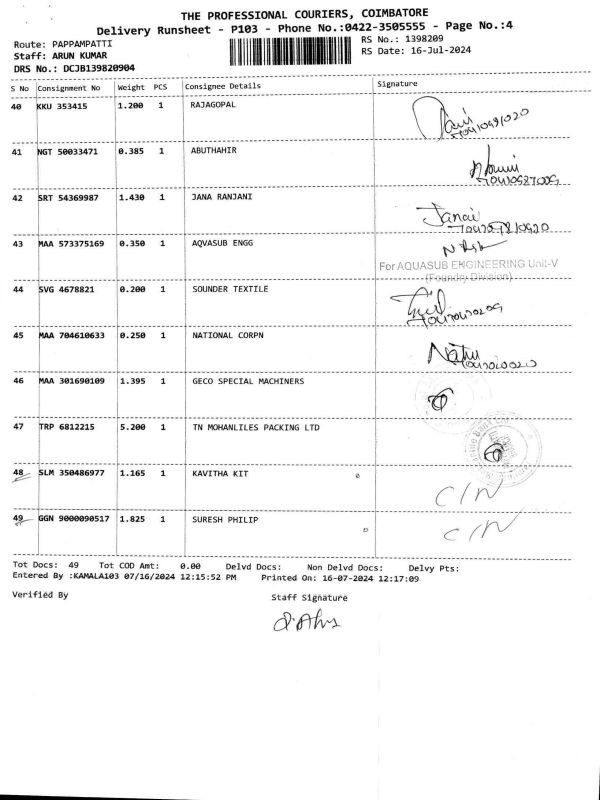 THE PROFESSIONAL COURIERS, COIMBATORE
Delivery Runsheet - P103 - Phone No.:0422-3505555 - Page No.:4
Route: PAPPAMPATTI
RS No.: 1398209
Staff: ARUN KUMAR
RS Date: 16-Jul-2024
DRS No.: DCJB139820904
S No Consignment No Weight PCS Consignee Details Signature
40 KKU 353415 1.200 1 RAJAGOPAL
41 NGT 50033471 0.385 1 ABUTHAHIR
42 SRT 54369987 1.430 1 JANA RANJANI
Janai
43 MAA 573375169 0.350 1 AQVASUB ENGG
For AQUASUB ENGINEERING Unit-V
(Foundry Division)
44 SVG 4678821 0.200 1 SOUNDER TEXTILE
45 MAA 704610633 0.250 1 NATIONAL CORPN
46 MAA 301690109 1.395 1 GECO SPECIAL MACHINERS
47 TRP 6812215 5.200 1 TN MOHANLILES PACKING LTD
48 SLM 350486977 1.165 1 KAVITHA KIT
C/N
49 GGN 9000090517 1.825 1 SURESH PHILIP
C/N
Tot Docs: 49 Tot COD Amt: 0.00 Delvd Docs: Non Delvd Docs: Delvy Pts:
Entered By :KAMALA103 07/16/2024 12:15:52 PM Printed On: 16-07-2024 12:17:09
Verified By Staff Signature